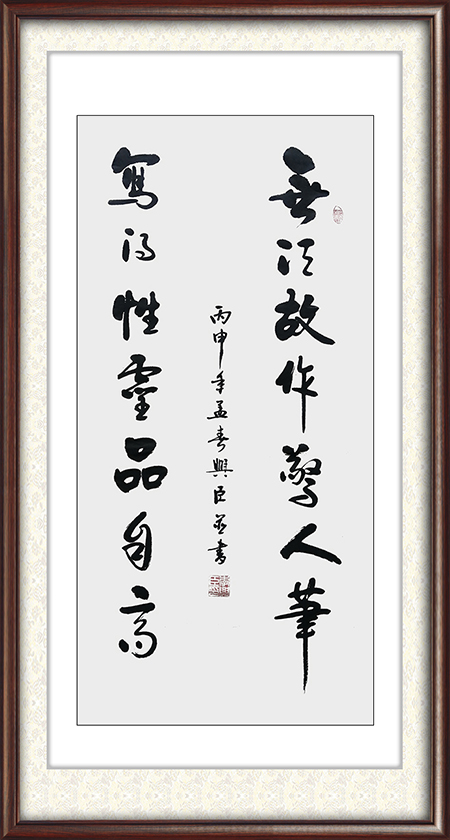 無須故作驚人筆
寫得性靈品自高
丙申年孟春興臣並書